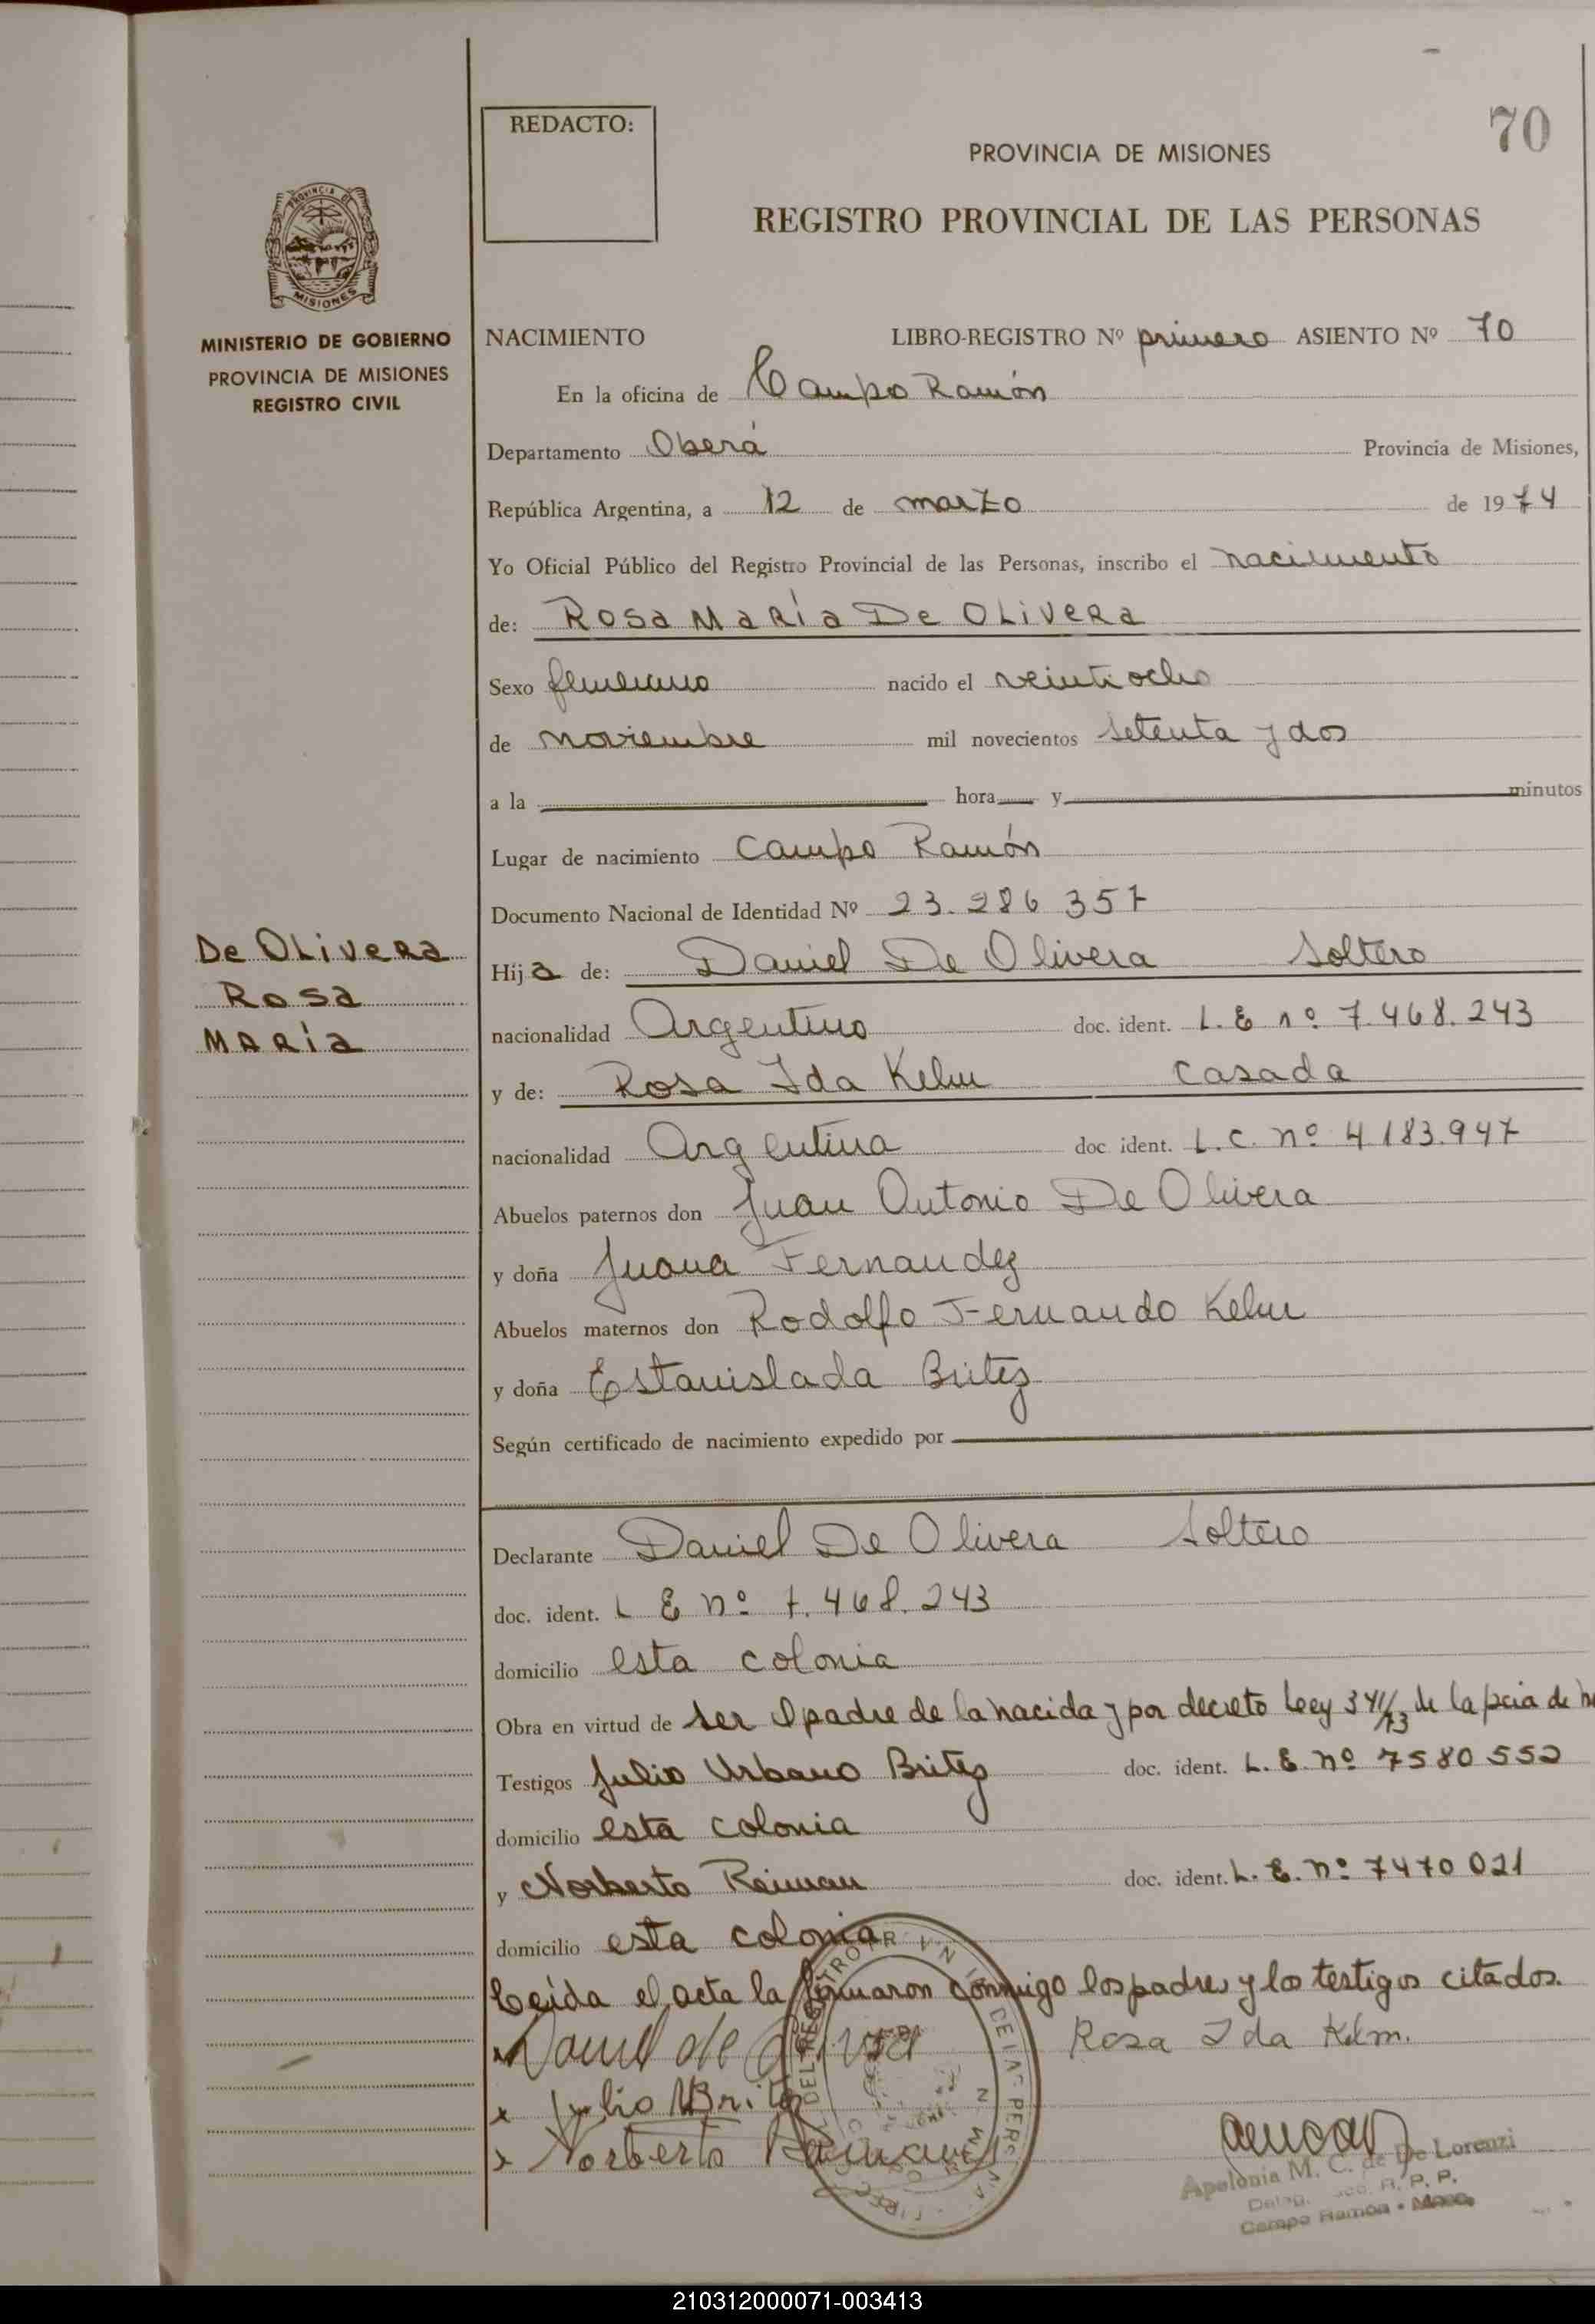 70
REDACTO:
PROVINCIA DE MISIONES
REGISTRO PROVINCIAL DE LAS PERSONAS
PROVINCIA DE
MISIONES
MINISTERIO DE GOBIERNO
PROVINCIA DE MISIONES
REGISTRO CIVIL
NACIMIENTO LIBRO-REGISTRO Nº primero ASIENTO Nº 70
En la oficina de Campo Ramón
Departamento Oberá Provincia de Misiones,
República Argentina, a 12 de marzo de 1974
Yo Oficial Público del Registro Provincial de las Personas, inscribo el nacimiento
de: ROSA MARÍA DE OLIVERA
Sexo femenino nacido el veintiocho
de noviembre mil novecientos setenta y dos
a la hora y minutos
Lugar de nacimiento Campo Ramón
Documento Nacional de Identidad Nº 23.286 357
De OLIVERA
ROSA
MARÍA
Hija de: Daniel De Olivera Soltero
nacionalidad Argentino doc. ident. L. E nº 7.468.243
y de: Rosa Ida Kelm Casada
nacionalidad Argentina doc ident. L. C. nº 4.183.947
Abuelos paternos don Juan Antonio De Olivera
y doña Juana Fernandez
Abuelos maternos don Rodolfo Fernando Kelm
y doña Estanislada Britez
Según certificado de nacimiento expedido por
Declarante Daniel De Olivera Soltero
doc. ident. L E nº 7.468.243
domicilio esta colonia
Obra en virtud de ser el padre de la nacida y por decreto Leey 341/73 de la pcia de
Testigos Julio Urbano Britez doc. ident. L. E. nº 7580 552
domicilio esta colonia
y Norberto Reiman doc. ident. L. E. nº 7470 021
domicilio esta colonia
Leída el acta la firmaron conmigo los padres y los testigos citados.
Daniel de Olivera Rosa Ida Kelm.
x Julio Britez
x Norberto
Apolonia M. C. de De Lorenzi
R. P. P.
Campo Ramón -
210312000071-003413